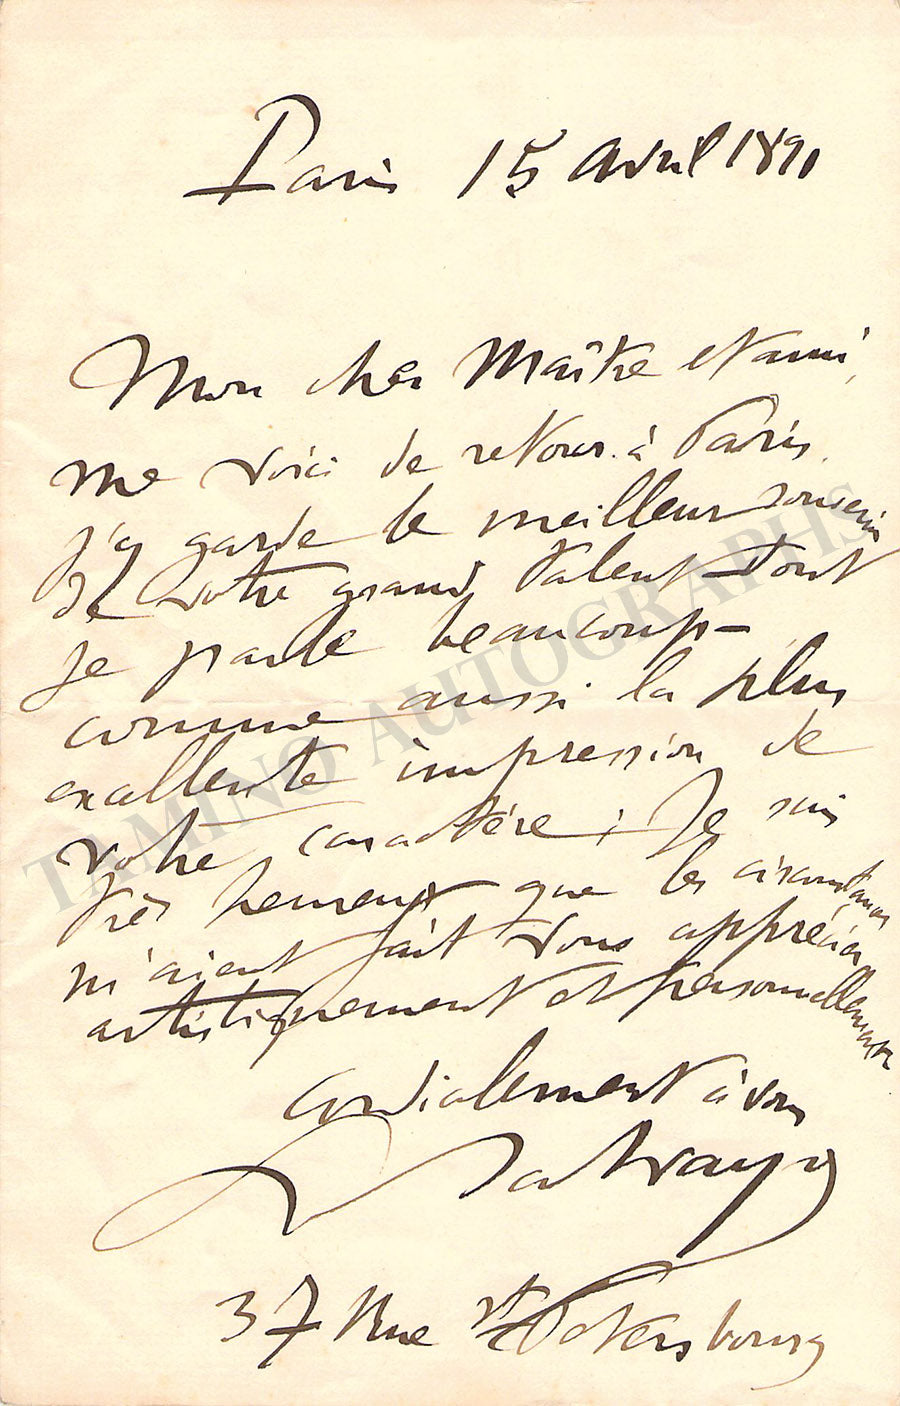 Paris 15 Avril 1891
Mon cher Maître et ami,
me voici de retour à Paris.
j'y garde le meilleur souvenir
de votre grand talent dont
je parle beaucoup –
comme aussi la plus
excellente impression de
votre caractère ; Je suis
très heureux que les circonstances
m'aient fait vous apprécier
artistiquement et personnellement
cordialement à vous
37 Rue St Petersbourg
TAMINO AUTOGRAPHS